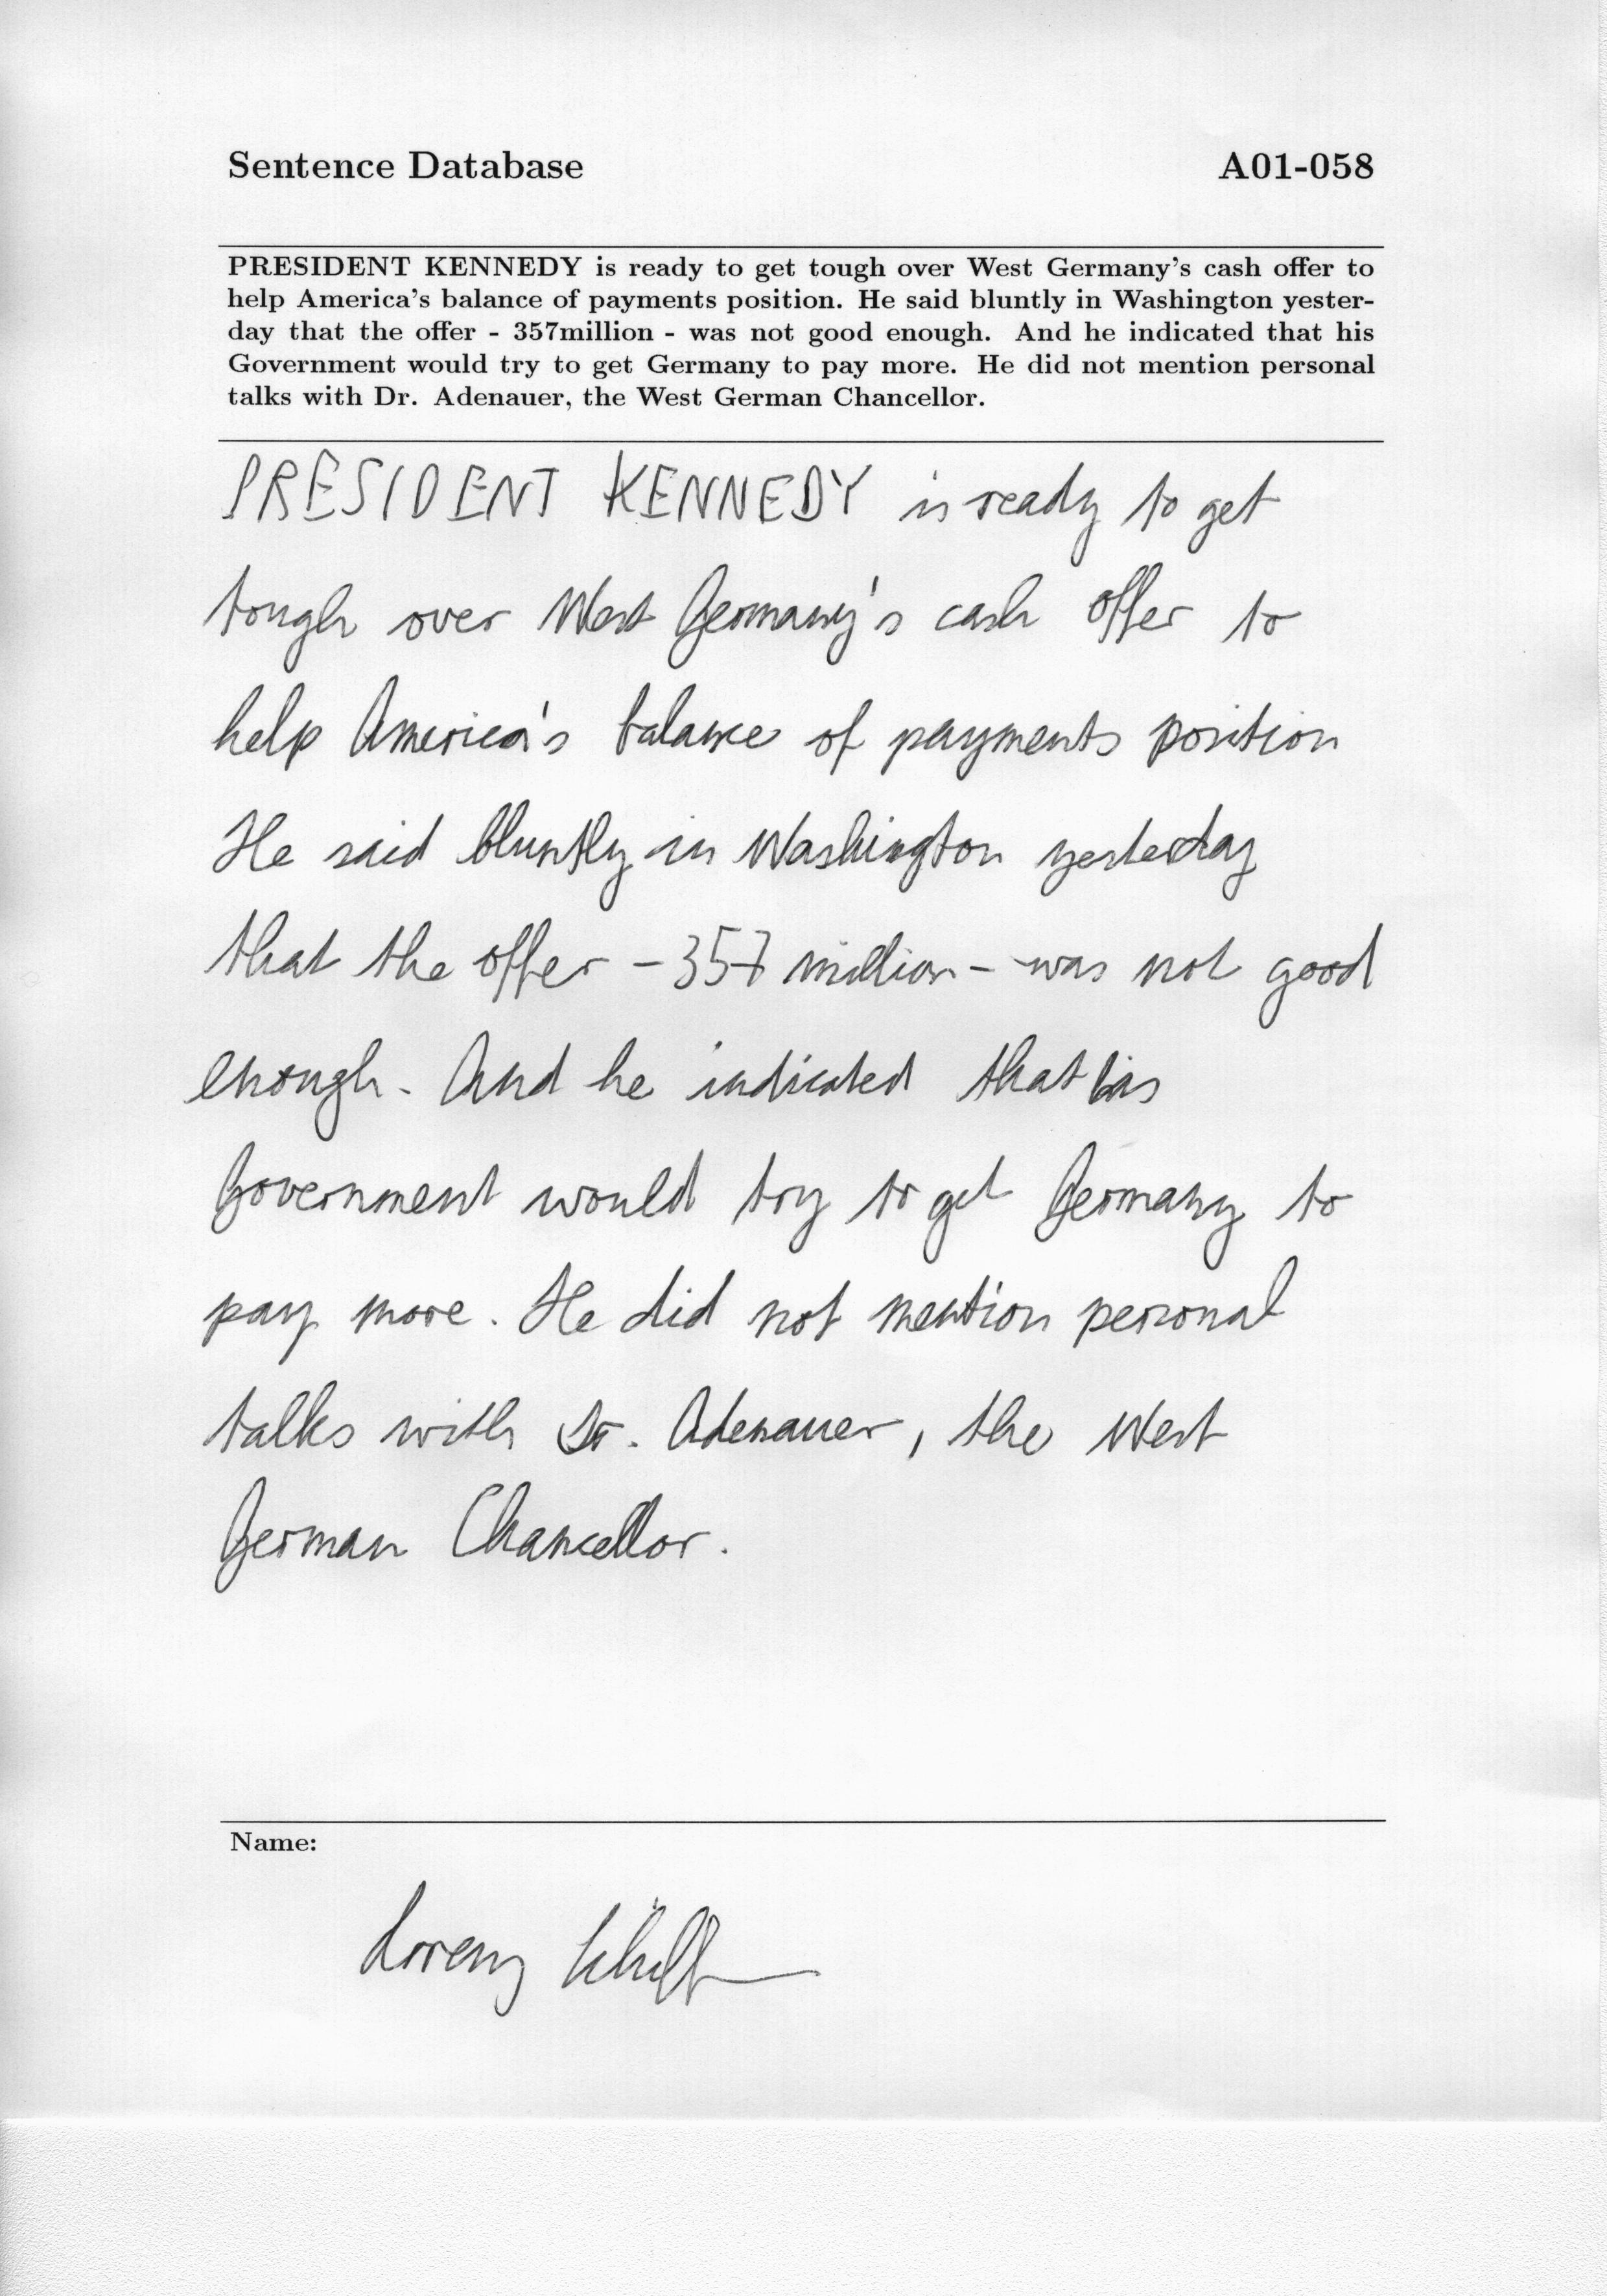 Sentence Database A01-058
PRESIDENT KENNEDY is ready to get tough over West Germany's cash offer to
help America's balance of payments position. He said bluntly in Washington yester-
day that the offer - 357million - was not good enough. And he indicated that his
Government would try to get Germany to pay more. He did not mention personal
talks with Dr. Adenauer, the West German Chancellor.
PRESIDENT KENNEDY is ready to get
tough over West Germany's cash offer to
help America's balance of payments position
He said bluntly in Washington yesterday
that the offer - 357 million - was not good
enough. And he indicated that his
Government would try to get Germany to
pay more. He did not mention personal
talks with Dr. Adenauer, the West
German Chancellor.
Name:
Lorenz